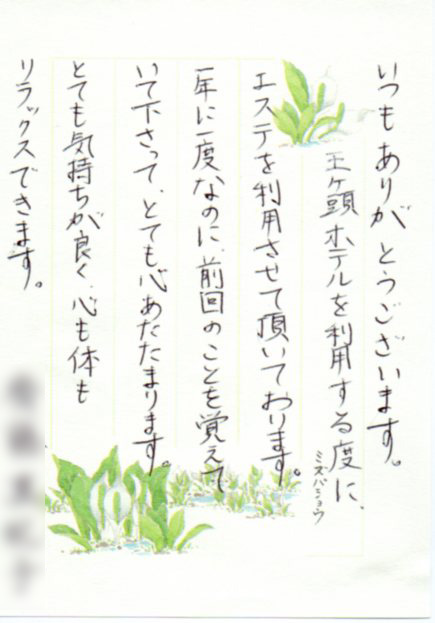 いつもありがとうございます。
王ヶ頭ホテルを利用する度に、
エステを利用させて頂いております。
一年に一度なのに、前回のことを覚えて
いて下さって、とても心あたたまります。
とても気持ちが良く、心も体も
リラックスできます。
ミズバショウ